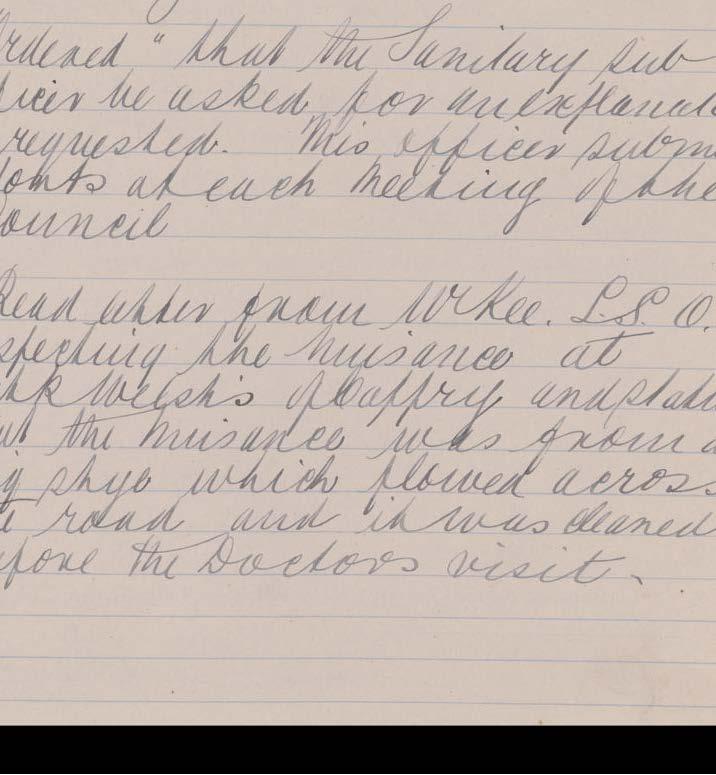 rdered " that the Sanitary sub
ficer be asked for an explanat
requested. This officer subm
ports at each meeting of the
ouncil
Read letter from McKee. S.S.O.
specting the nuisance at
Welsh's of Caffry and stati
at the nuisance was from a
g stye which flowed across
e road and it was cleaned
efore the Doctors visit.